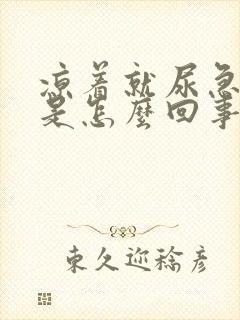 凉着就尿急
是怎麼回事
東久迩稔彦